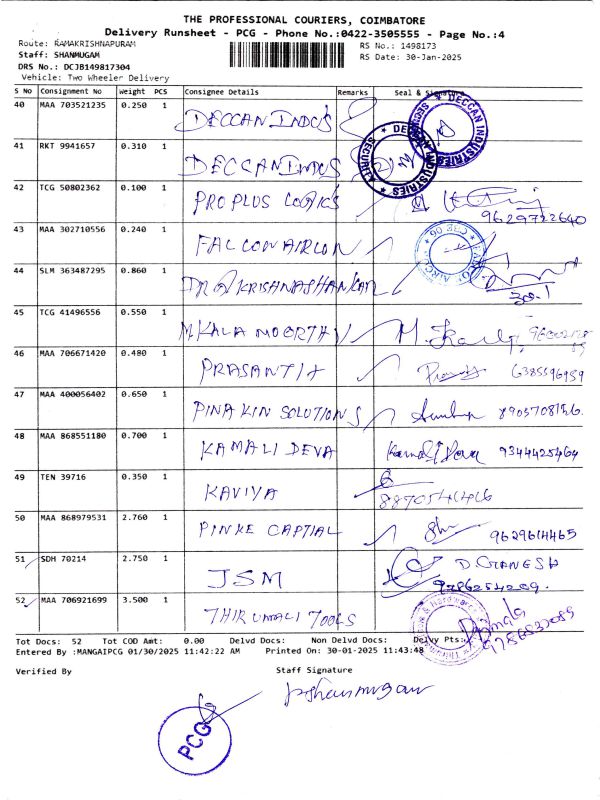 THE PROFESSIONAL COURIERS, COIMBATORE
Delivery Runsheet - PCG - Phone No.:0422-3505555 - Page No.:4
Route: RAMAKRISHNAPURAM
RS No.: 1498173
Staff: SHANMUGAM
RS Date: 30-Jan-2025
DRS No.: DCJB149817304
Vehicle: Two Wheeler Delivery
S No Consignment No Weight PCS Consignee Details Remarks Seal & Signature
40 MAA 703521235 0.250 1 DECCAN INDUS
41 RKT 9941657 0.310 1 DECCAN INDUS
42 TCG 50802362 0.100 1 PROPLUS LOGICS 9629722640
43 MAA 302710556 0.240 1 FALCON AIRCON
44 SLM 363487295 0.860 1 DR RADHAKRISHNASHANKAR 30.1
45 TCG 41496556 0.550 1 M.KALA MOORTHY
46 MAA 706671420 0.480 1 PRASANTH 6385596959
47 MAA 400056402 0.650 1 PINAKIN SOLUTIONS
48 MAA 868551180 0.700 1 KAMALI DEVA Kamali Deva 9344425464
49 TEN 39716 0.350 1 KAVIYA
50 MAA 868979531 2.760 1 PINKE CAPTIAL 9629614465
51 SDH 70214 2.750 1 JSM D GANESH
52 MAA 706921699 3.500 1 THIRUMALI TOOLS
DECCAN INDUSTRIES
SECURITY
DECCAN INDUSTRIES
SECURITY
Tot Docs: 52 Tot COD Amt: 0.00 Delvd Docs: Non Delvd Docs: Delvy Pts.:
Entered By :MANGAIPCG 01/30/2025 11:42:22 AM Printed On: 30-01-2025 11:43:48
Verified By Staff Signature
P.Shanmugam
PCG